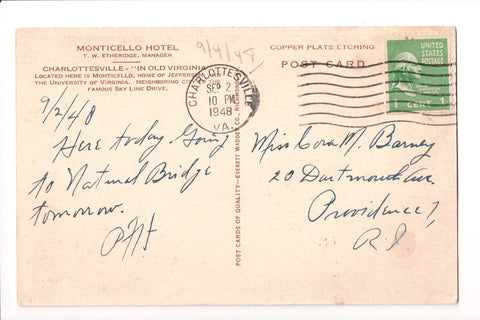 MONTICELLO HOTEL
T. W. ETHERIDGE, MANAGER
CHARLOTTESVILLE - "IN OLD VIRGINIA
LOCATED HERE IS MONTICELLO, HOME OF JEFFERSON
THE UNIVERSITY OF VIRGINIA. NEIGHBORING CREST OF THE
FAMOUS SKY LINE DRIVE.
9/4/48
COPPER PLATE ETCHING
POST CARD
CHARLOTTESVILLE
SEP 2
10 PM
1948
VA.
UNITED
STATES
POSTAGE
1 CENT 1
9/2/48
Here today. Going
to Natural Bridge
tomorrow.
POST CARDS OF QUALITY—EVERETT WADDEY CO., RICHMOND
Miss Cora M. Barney
20 Dartmouth Ave.
Providence 7,
R I